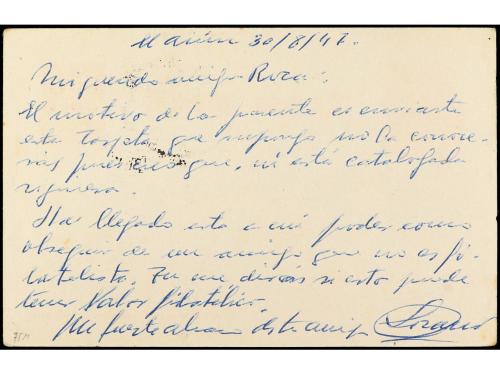 El Aiún 30/8/47.
Mi querido amigo Roca:
El motivo de la presente es enviarte
esta tarjeta que supongo no la conoce-
rás pues creo que, ni está catalogada
siquiera.
Ha llegado esta a mi poder como
obsequio de un amigo que no es fi-
latelista. Tu me dirás si esto puede
tener valor filatélico.
Un fuerte abrazo de tu amigo Lozano
75M